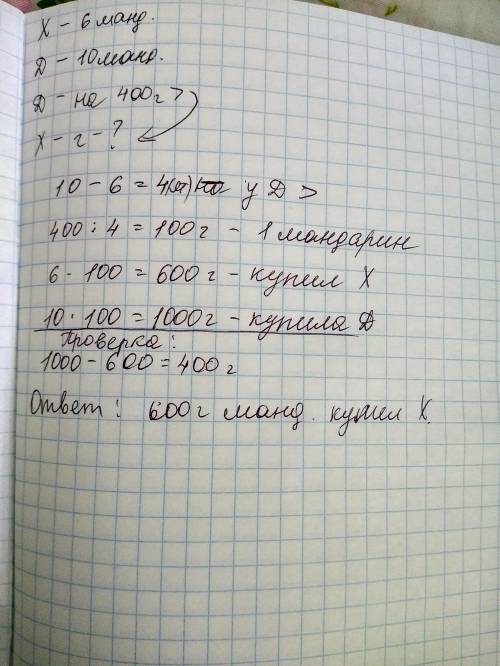 Х – 6 манд.
Д – 10 манд.
Д – на 400 г >
Х – г – ?
10 – 6 = 4(м) у Д >
400 : 4 = 100 г – 1 мандарин
6 · 100 = 600 г – купил Х
10 · 100 = 1000 г – купила Д
Проверка:
1000 – 600 = 400 г
Ответ: 600 г манд. купил Х.